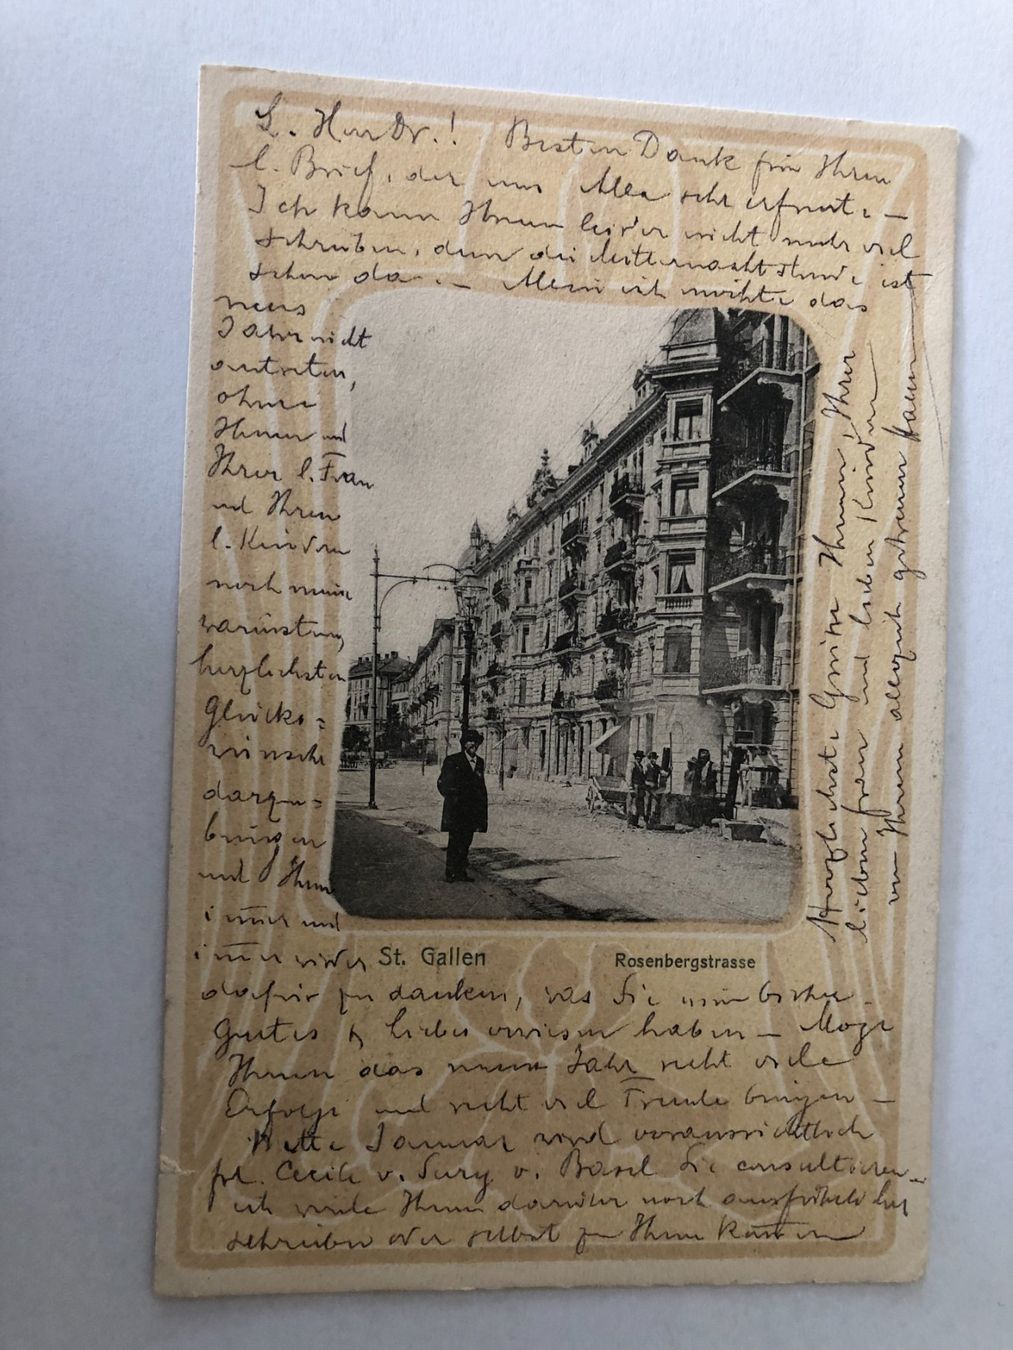 L. Herr Dr.! Besten Dank für Ihren
l. Brief, der uns Alle sehr erfreute –
Ich kann Ihnen leider nicht mehr viel
schreiben, denn die Mitternachtstunde ist
schon da. – Allein ich möchte das
neue
Jahr nicht
antreten,
ohne
Ihnen und
Ihrer l. Frau
und Ihren
l. Kindern
noch meine
wärmsten,
herzlichsten
Glücks=
wünsche
darzu=
bringen
und Ihnen
immer und
immer wieder
St. Gallen
Rosenbergstrasse
dafür zu danken, was Sie uns bisher
Gutes & Liebes erwiesen haben – Möge
Ihnen das neue Jahr recht viele
Erfolge und recht viel Freude bringen –
Mitte Januar wird voraussichtlich
frl. Cecile v. Sury v. Basel Sie consultieren –
ich werde Ihnen darüber noch ausführlicher
schreiben oder selbst zu Ihnen kommen
Herzlichste Grüsse Ihnen, Ihrer
lieben frau und lieben Kindern
von Ihrem allezeit getreuen